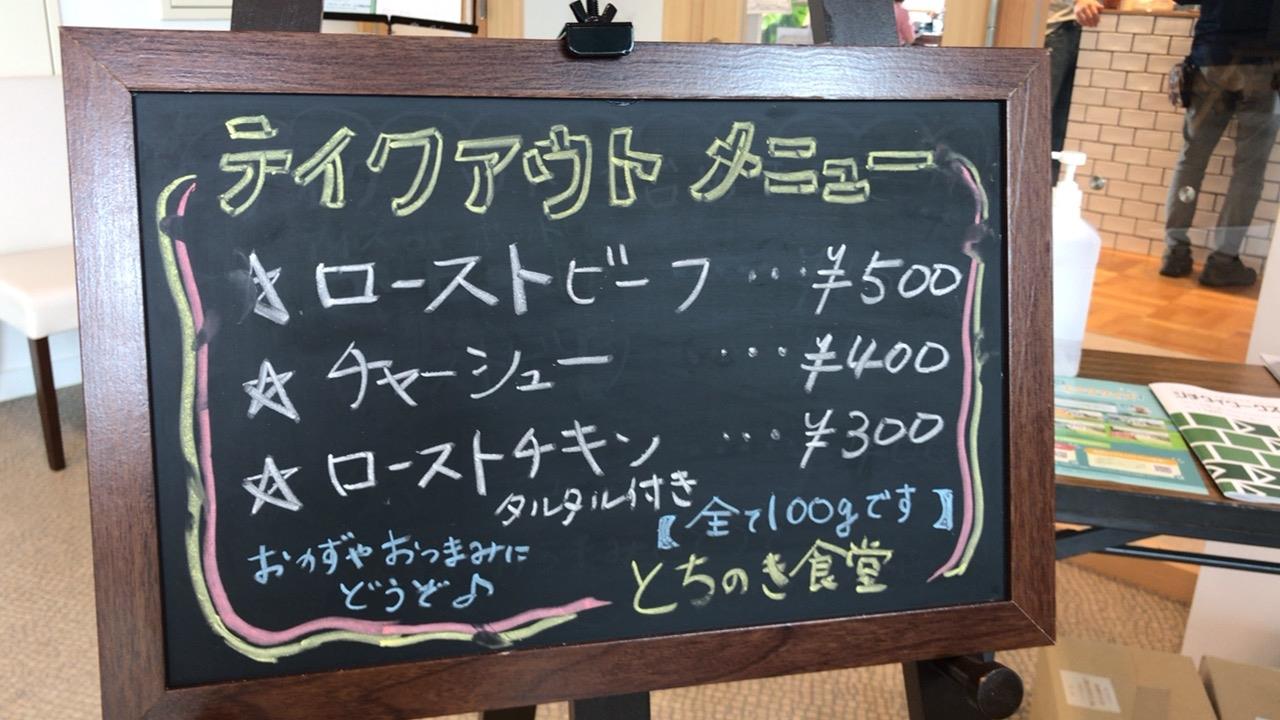 テイクアウト メニュー
☆ ローストビーフ … ¥500
☆ チャーシュー … ¥400
☆ ローストチキン … ¥300
タルタル付き
【全て100gです】
おかずやおつまみに
どうぞ♪
とちのき食堂